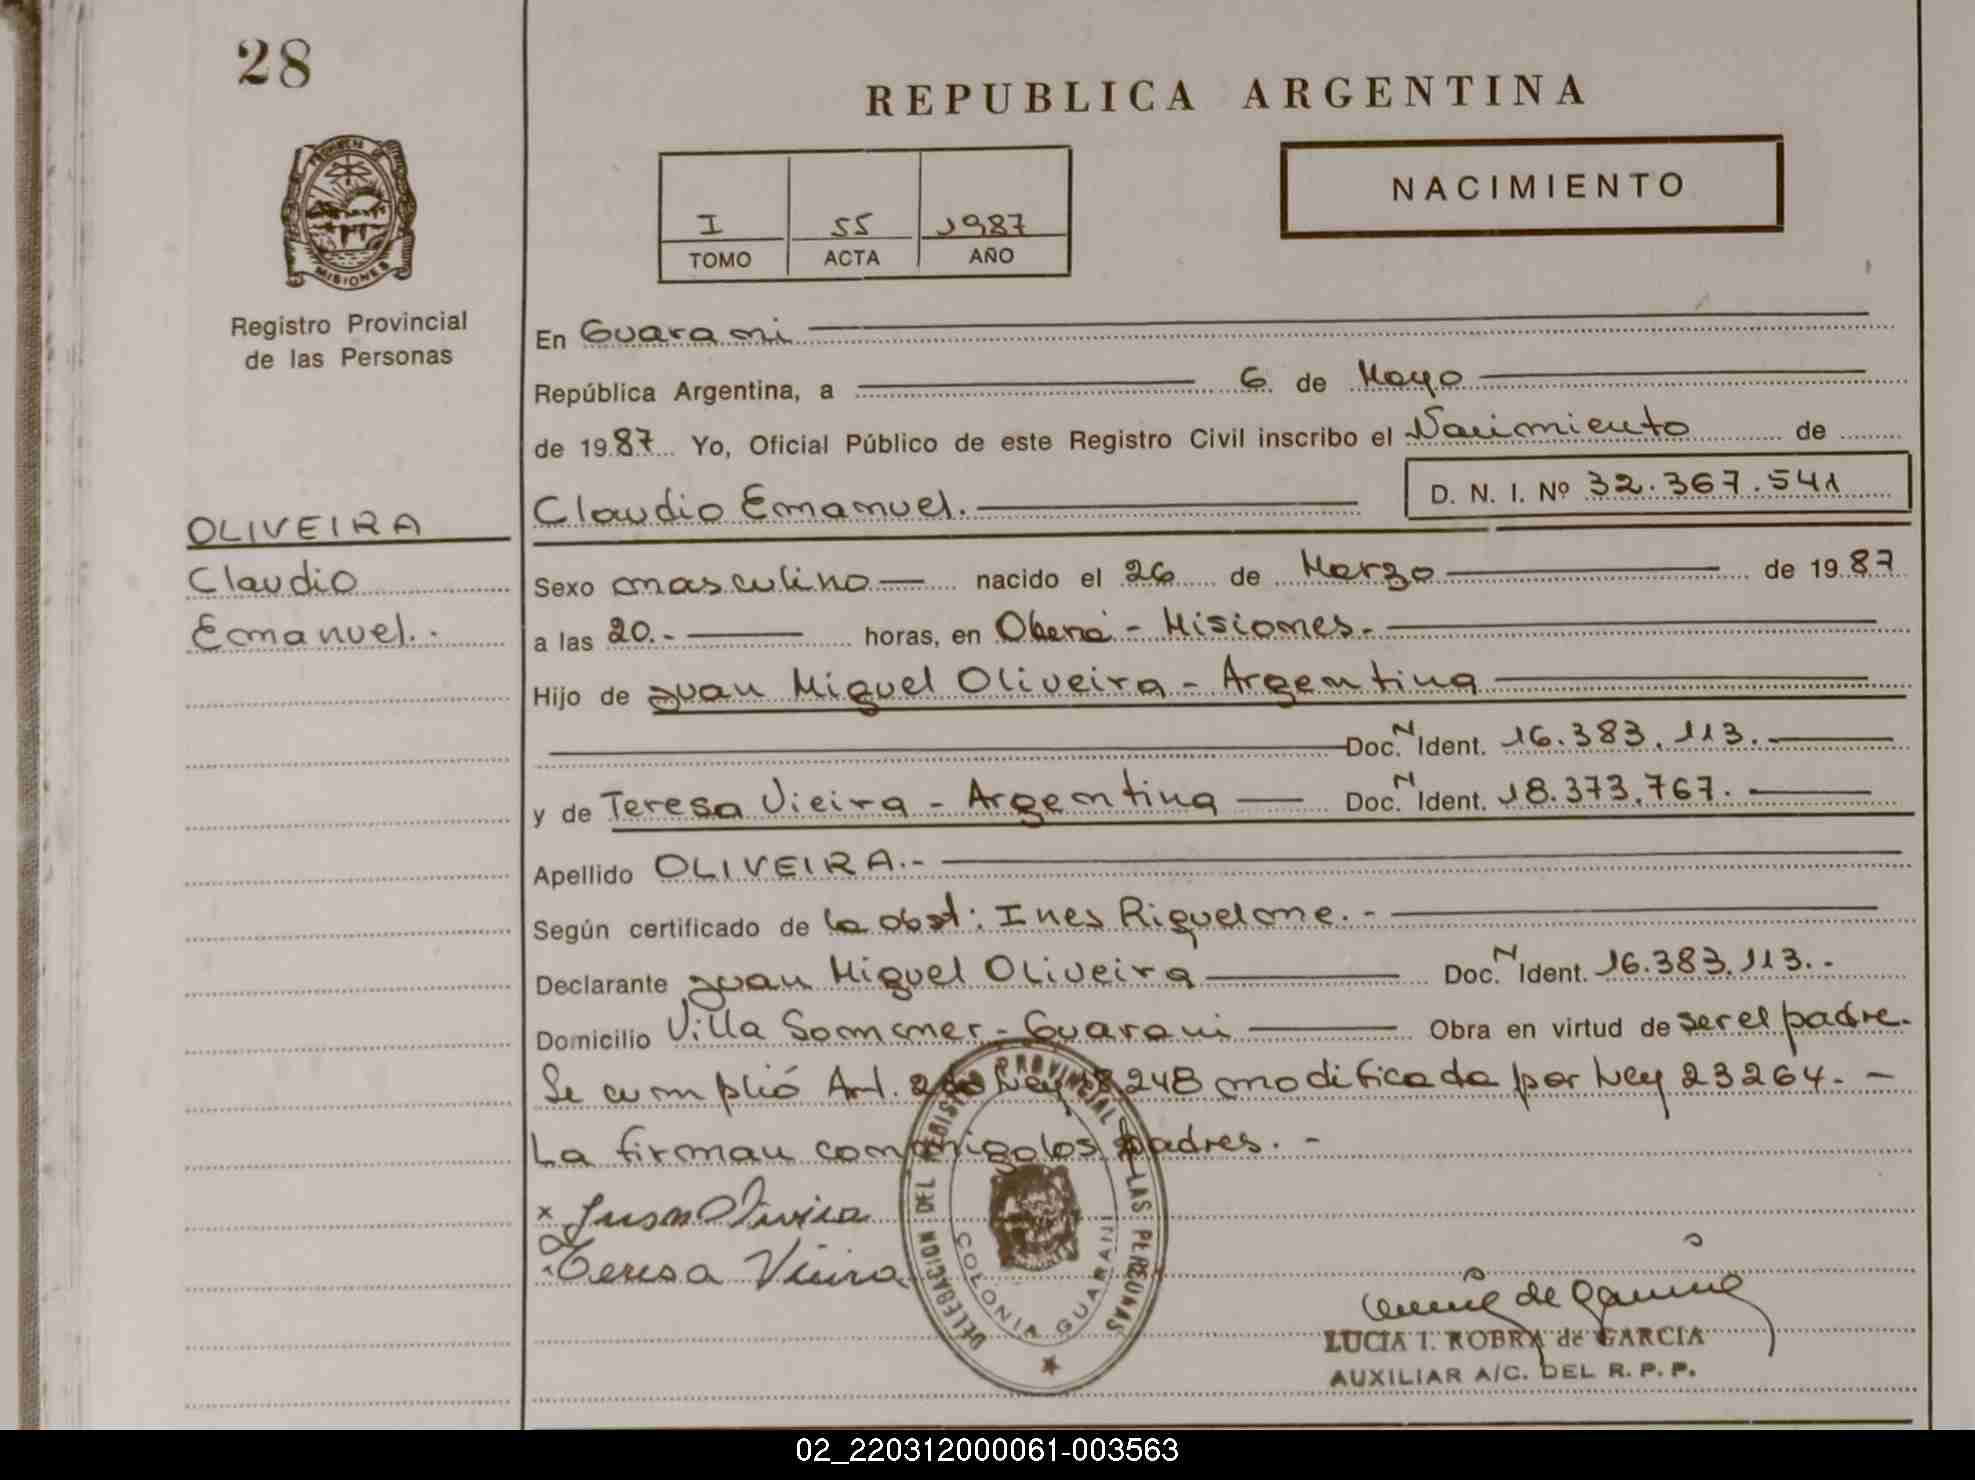 28
REPUBLICA ARGENTINA
PROVINCIA DE
MISIONES
Registro Provincial
de las Personas
I 55 1987
TOMO ACTA AÑO
NACIMIENTO
En Guarani
República Argentina, a 6 de Mayo
de 1987 Yo, Oficial Público de este Registro Civil inscribo el Nacimiento de
Claudio Emanuel. D. N. I. Nº 32.367.541
OLIVEIRA
Claudio
Emanuel.-
Sexo masculino nacido el 26 de Marzo de 1987
a las 20.- horas, en Oberá - Misiones.-
Hijo de Juan Miguel Oliveira - Argentina
Doc. N Ident. 16.383.113.
y de Teresa Vieira - Argentina Doc. N Ident. 18.373.767.
Apellido OLIVEIRA.-
Según certificado de la obst: Ines Riquelme.-
Declarante Juan Miguel Oliveira Doc. N Ident. 16.383.113.-
Domicilio Villa Sommer - Guarani Obra en virtud de ser el padre.
Se cumplió Art. 2do Ley 18.248 modificada por Ley 23264.-
La firman conmigo los padres.-
x Juan Oliveira
Teresa Vieira
DELEGACION DEL REGISTRO PROVINCIAL DE LAS PERSONAS
COLONIA GUARANI
LUCIA I. ROBRA de GARCIA
AUXILIAR A/C. DEL R. P. P.
02_220312000061-003563